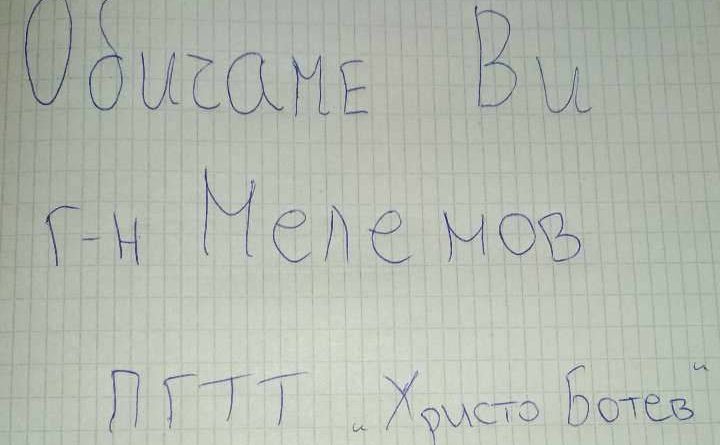 Обичаме Ви
г-н Мелемов
ПГТТ „Христо Ботев“